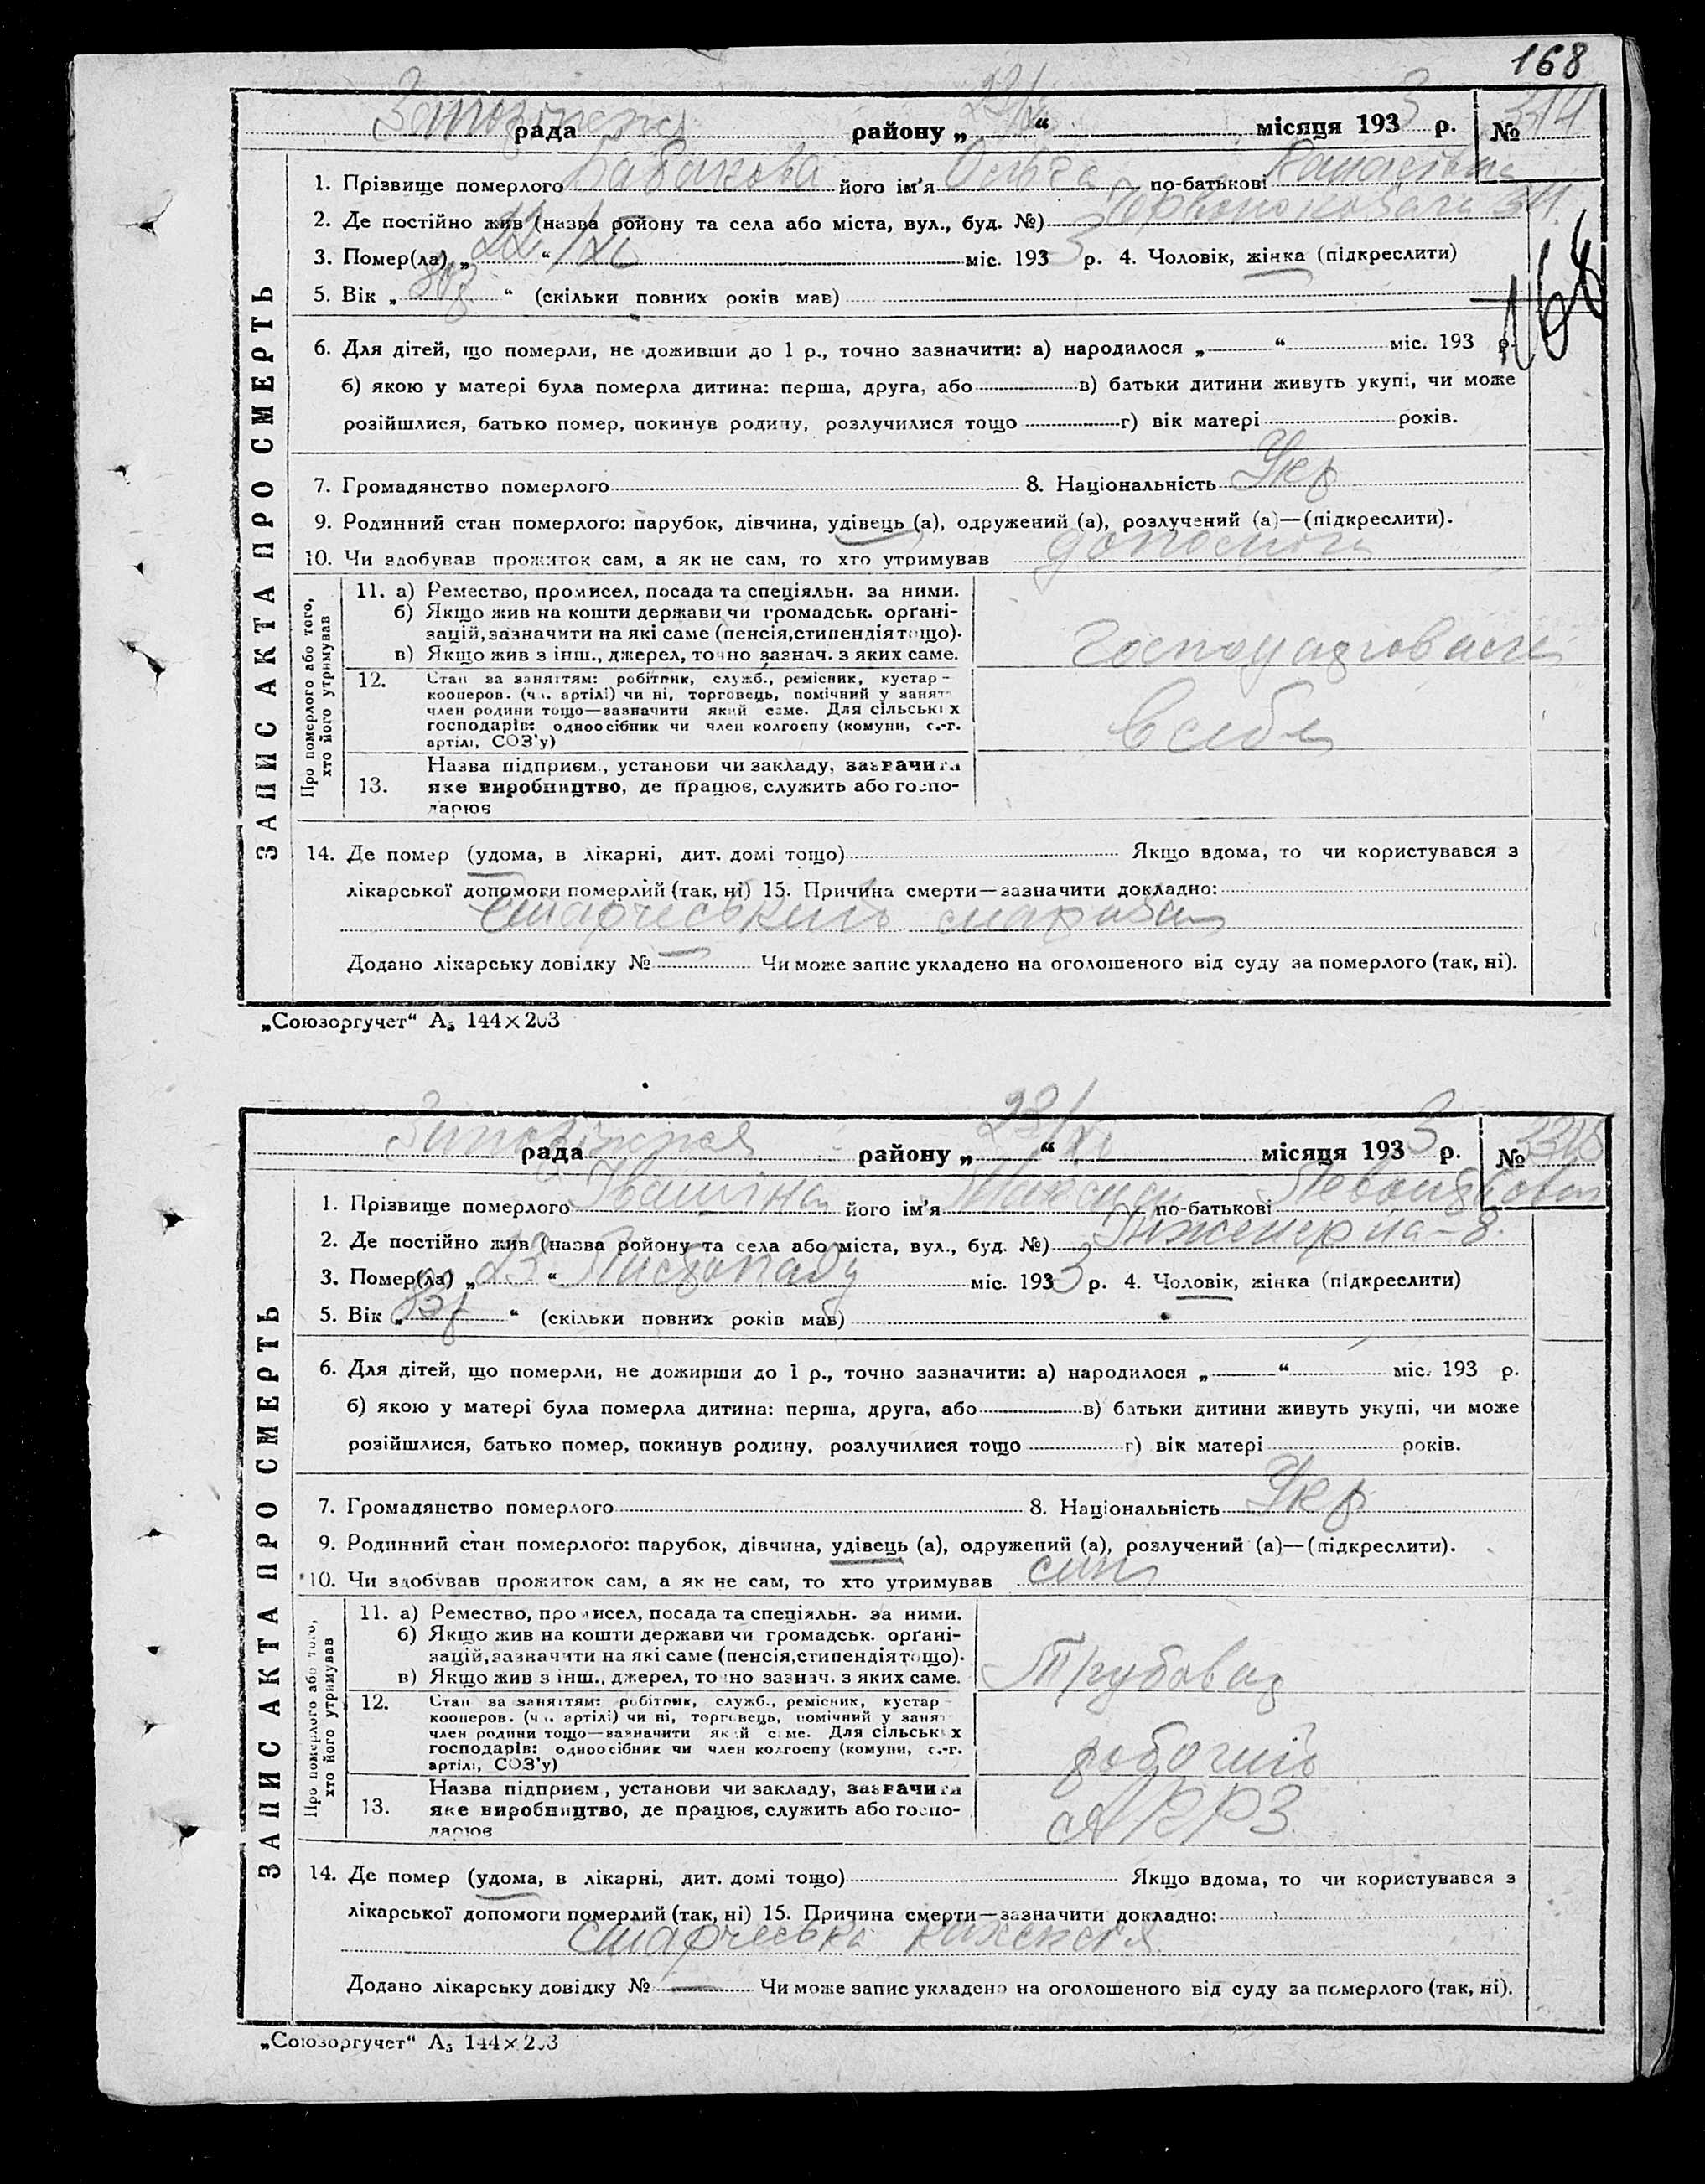 168
рада района „ 23/XI “ місяця 1933 р. № 314
1. Прізвище померлого Бабакова його ім'я Ольга по-батькові
2. Де постійно жив (назва ройону та села або міста, вул., буд. №)
3. Помер(ла) „ 22 “ /XI міс. 1933 р. 4. Чоловік, жінка (підкреслити)
5. Вік „ 80р. “ (скільки повних років мав)
168
6. Для дітей, що померли, не доживши до 1 р., точно зазначити: а) народилося „ “ міс. 193 р.
б) якою у матері була померла дитина: перша, друга, або в) батьки дитини живуть укупі, чи може
розійшлися, батько помер, покинув родину, розлучилися тощо г) вік матері років.
7. Громадянство померлого 8. Національність Укр
9. Родинний стан померлого: парубок, дівчина, удівець (а), одружений (а), розлучений (а)—(підкреслити).
10. Чи здобував прожиток сам, а як не сам, то хто утримував допомога
ЗАПИС АКТА ПРО СМЕРТЬ
Про померлого або того,
хто його утримував
11. а) Ремество, промисел, посада та спеціяльн. за ними.
б) Якщо жив на кошти держави чи громадськ. орґані-
зацій, зазначити на які саме (пенсія, стипендія тощо).
в) Якщо жив з інш., джерел, точно зазнач. з яких саме.
12. Стан за заняттям: робітник, служб., ремісник, кустар-
кооперов. (чл. артілі) чи ні, торговець, помічний у занят
член родини тощо—зазначити який саме. Для сільських
господарів: одноосібник чи член колгоспу (комуни, с.-г.
артілі, СОЗ'у)
в себе
13. Назва підприєм., установи чи закладу, зазначити
яке виробництво, де працює, служить або госпо-
дарює
14. Де помер (удома, в лікарні, дит. домі тощо) Якщо вдома, то чи користувався з
лікарської допомоги померлий (так, ні) 15. Причина смерти—зазначити докладно:
старческий маразм
Додано лікарську довідку № — Чи може запис укладено на оголошеного від суду за померлого (так, ні).
„Союзоргучет“ А₅ 144×203
рада району „ 23/XI “ місяця 1933 р. №
1. Прізвище померлого Івашіна його ім'я Максим по-батькові
2. Де постійно жив (назва ройону та села або міста, вул., буд. №) Інженерна-8.
3. Помер(ла) „ 23 “ Листопаду міс. 1933 р. 4. Чоловік, жінка (підкреслити)
5. Вік „ “ (скільки повних років мав)
6. Для дітей, що померли, не доживши до 1 р., точно зазначити: а) народилося „ “ міс. 193 р.
б) якою у матері була померла дитина: перша, друга, або в) батьки дитини живуть укупі, чи може
розійшлися, батько помер, покинув родину, розлучилися тощо г) вік матері років.
7. Громадянство померлого 8. Національність Укр
9. Родинний стан померлого: парубок, дівчина, удівець (а), одружений (а), розлучений (а)—(підкреслити).
10. Чи здобував прожиток сам, а як не сам, то хто утримував син
ЗАПИС АКТА ПРО СМЕРТЬ
Про померлого або того,
хто його утримував
11. а) Ремество, промисел, посада та спеціяльн. за ними.
б) Якщо жив на кошти держави чи громадськ. орґані-
зацій, зазначити на які саме (пенсія, стипендія тощо).
в) Якщо жив з інш., джерел, точно зазнач. з яких саме.
12. Стан за заняттям: робітник, служб., ремісник, кустар-
кооперов. (чл. артілі) чи ні, торговець, помічний у занят
член родини тощо—зазначити який саме. Для сільських
господарів: одноосібник чи член колгоспу (комуни, с.-г.
артілі, СОЗ'у)
робочий
13. Назва підприєм., установи чи закладу, зазначити
яке виробництво, де працює, служить або госпо-
дарює
14. Де помер (удома, в лікарні, дит. домі тощо) Якщо вдома, то чи користувався з
лікарської допомоги померлий (так, ні) 15. Причина смерти—зазначити докладно:
старческа кахексія
Додано лікарську довідку № — Чи може запис укладено на оголошеного від суду за померлого (так, ні).
„Союзоргучет“ А₅ 144×203